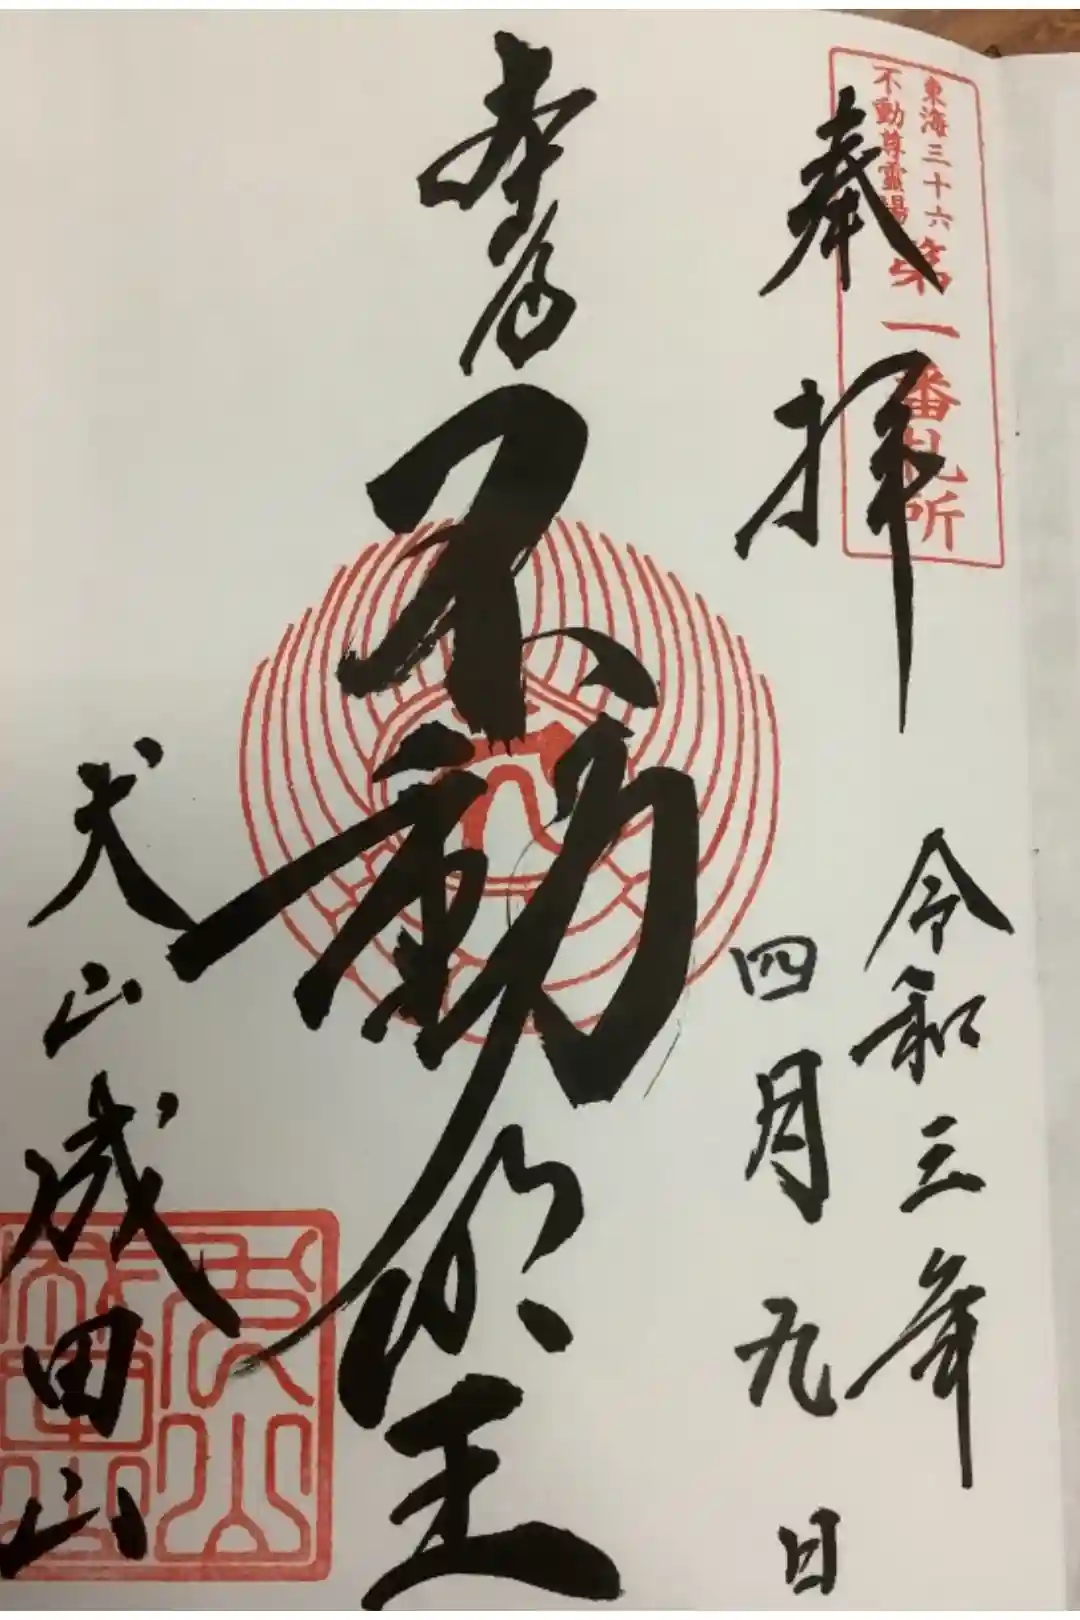 東海三十六
不動尊靈場
第一番札所
奉拝
令和三年
四月九日
不動明王
犬山成田山
犬山
成田山